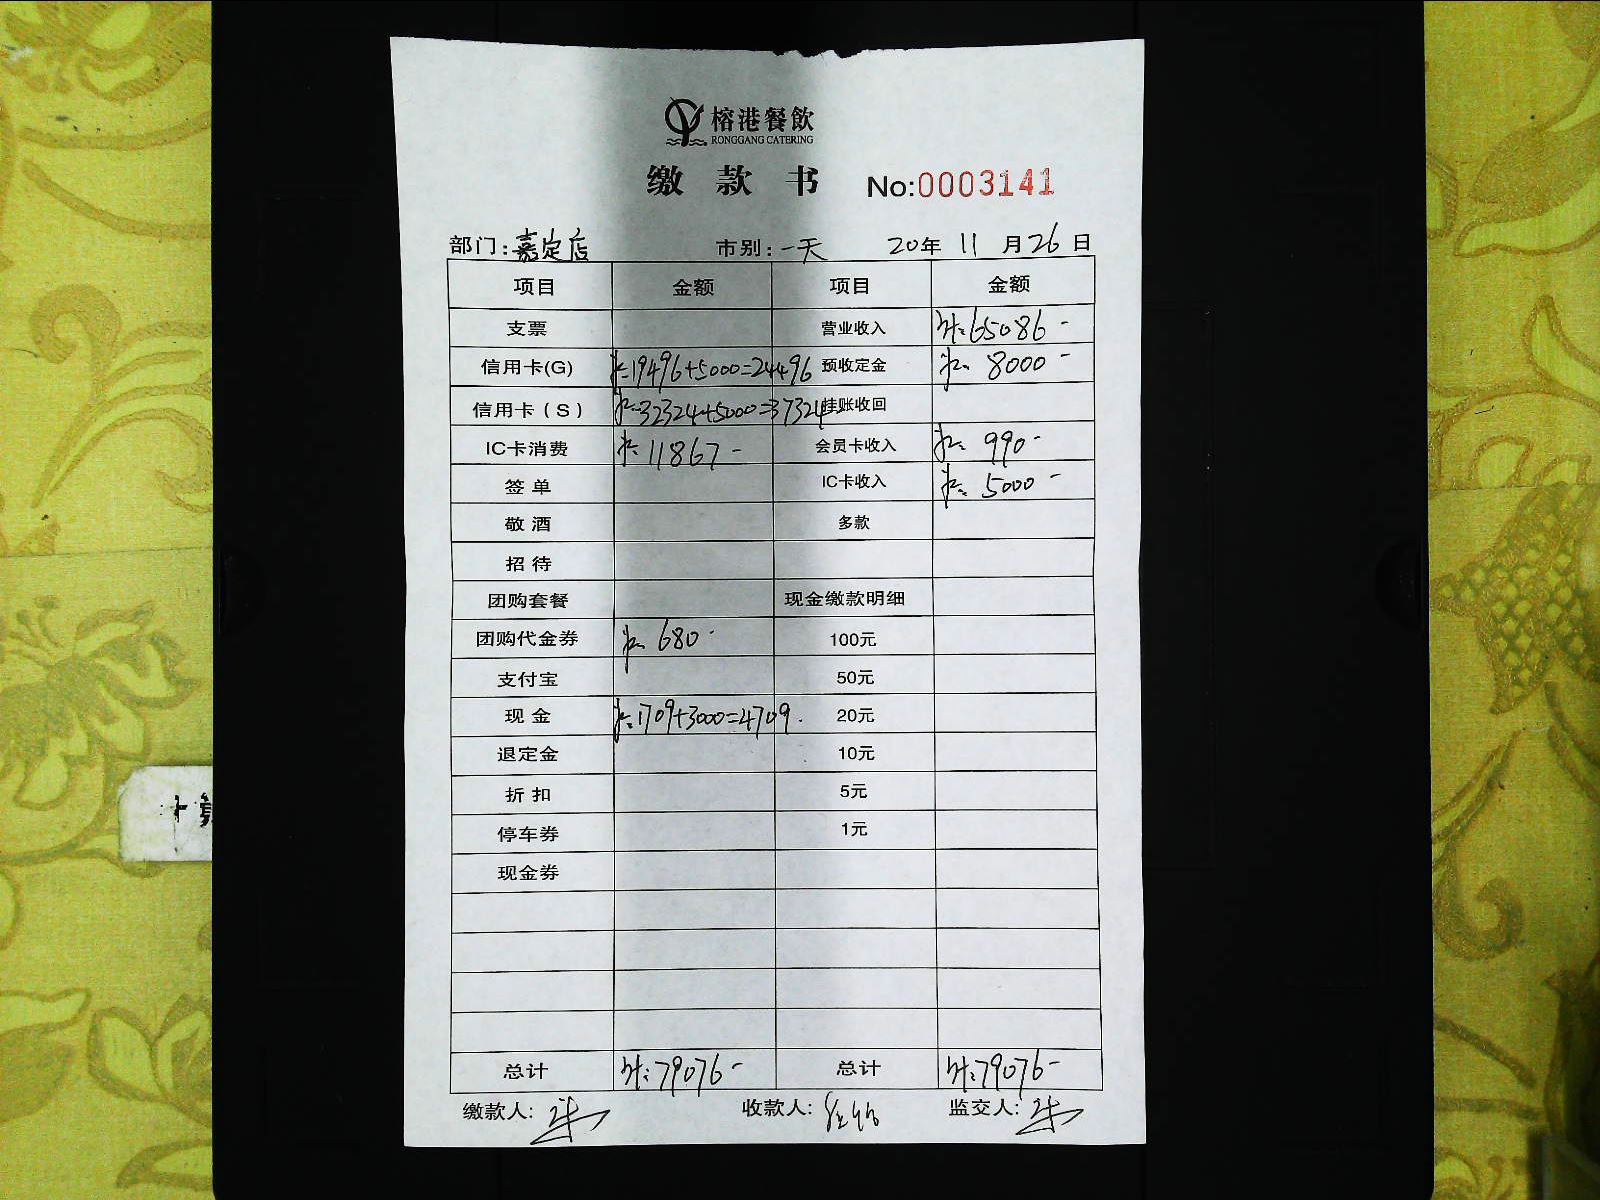 榕港餐飲
RONGGANG CATERING
缴款书 No:0003141
部门:嘉定店 市别:一天 20年 11月26日
项目 金额 项目 金额
支票 营业收入 计:65086-
信用卡(G) 计:19496+5000=24496 预收定金 计:8000-
信用卡(S) 计:32324+5000=37324 挂账收回
IC卡消费 计:11867- 会员卡收入 计:990-
签单 IC卡收入 计:5000-
敬酒 多款
招待
团购套餐 现金缴款明细
团购代金券 计:680- 100元
支付宝 50元
现金 计:1709+3000=4709. 20元
退定金 10元
折扣 5元
停车券 1元
现金券
总计 计:79076- 总计 计:79076-
缴款人: 收款人: 监交人: